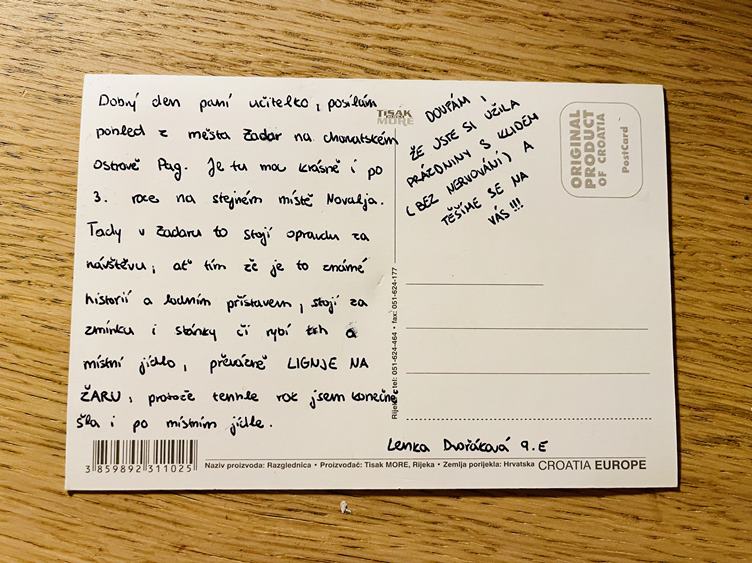 Dobrý den paní učitelko, posílám
pohled z města Zadar na chorvatském
Ostrově Pag. Je tu moc krásně i po
3. roce na stejném místě Novalja.
Tady v Zadaru to stojí opravdu za
návštěvu, ať tím že je to známé
historií a lodním přístavem, stojí za
zmínku i stánky či rybí trh a
místní jídlo, převážně LIGNJE NA
ŽARU, protože tenhle rok jsem konečně
šla i po místním jídle.
TISAK
MORE
DOUFÁM,
ŽE JSTE SI UŽILA
PRÁZDNINY S KLIDEM
(BEZ NERVOVÁNÍ) A
TĚŠÍME SE NA
VÁS!!!
ORIGINAL
PRODUCT
OF CROATIA
PostCard
Rijeka • tel: 051-624-464 • fax: 051-624-177
Lenka Dvořáková 9.E
3 859892 311025
Naziv proizvoda: Razglednica • Proizvođač: Tisak MORE, Rijeka • Zemlja porijekla: Hrvatska CROATIA EUROPE